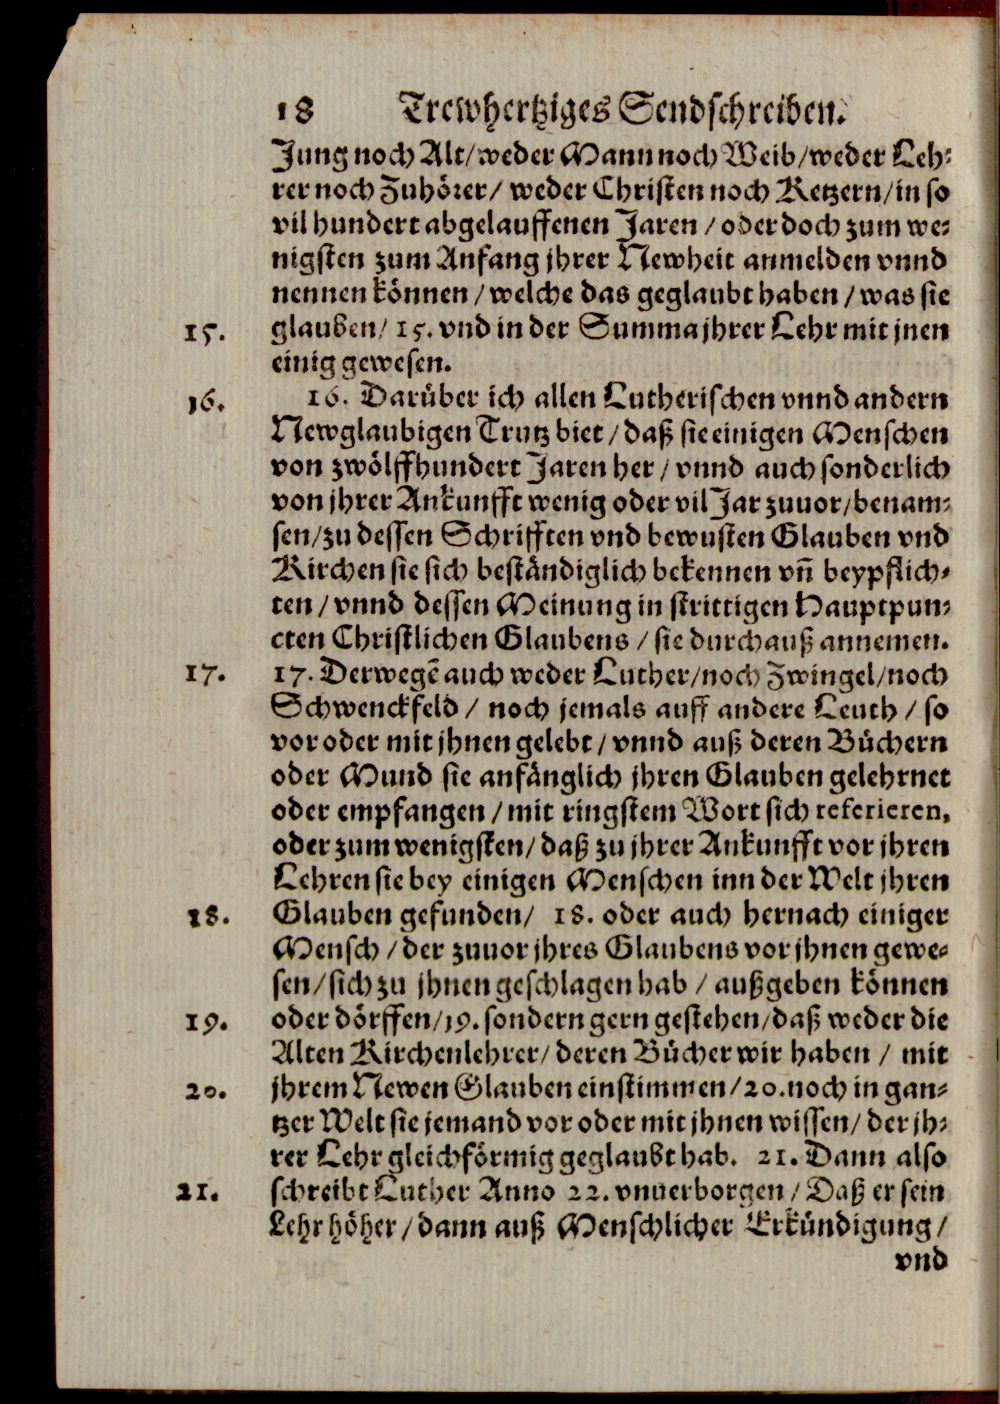 18 Trewhertziges Sendschreiben.
Jung noch Alt/weder Mann noch Weib/weder Leh-
rer noch Zuhörer/ weder Christen noch Ketzern/in so
vil hundert abgelauffenen Jaren / oder doch zum we-
nigsten zum Anfang jhrer Newheit anmelden vnnd
nennen können / welche das geglaubt haben / was sie
15. glauben/ 15. vnd in der Summa jhrer Lehr mit jnen
einig gewesen.
16. 16. Darüber ich allen Lutherischen vnnd andern
Newglaubigen Trutz biet / daß sie einigen Menschen
von zwölffhundert Jaren her / vnnd auch sonderlich
von jhrer Ankunfft wenig oder vil Jar zuuor/benam-
sen/zu dessen Schrifften vnd bewusten Glauben vnd
Kirchen sie sich beständiglich bekennen vñ beypflich-
ten / vnnd dessen Meinung in strittigen Hauptpun-
cten Christlichen Glaubens / sie durchauß annemen.
17. 17. Derwegẽ auch weder Luther/noch Zwingel/noch
Schwenckfeld / noch jemals auff andere Leuth / so
vor oder mit jhnen gelebt / vnnd auß deren Büchern
oder Mund sie anfänglich jhren Glauben gelehrnet
oder empfangen / mit ringstem Wort sich referieren,
oder zum wenigsten/ daß zu jhrer Ankunfft vor jhren
Lehren sie bey einigen Menschen inn der Welt jhren
18. Glauben gefunden/ 18. oder auch hernach einiger
Mensch / der zuuor jhres Glaubens vor jhnen gewe-
sen/sich zu jhnen geschlagen hab / außgeben können
19. oder dörffen/19. sondern gern gestehen/daß weder die
Alten Kirchenlehrer/ deren Bücher wir haben / mit
20. jhrem Newen Glauben einstimmen/20. noch in gan-
tzer Welt sie jemand vor oder mit jhnen wissen/ der jh-
rer Lehr gleichförmig geglaubt hab. 21. Dann also
21. schreibt Luther Anno 22. vnuerborgen / Daß er sein
Lehr höher / dann auß Menschlicher Erkündigung /
vnd